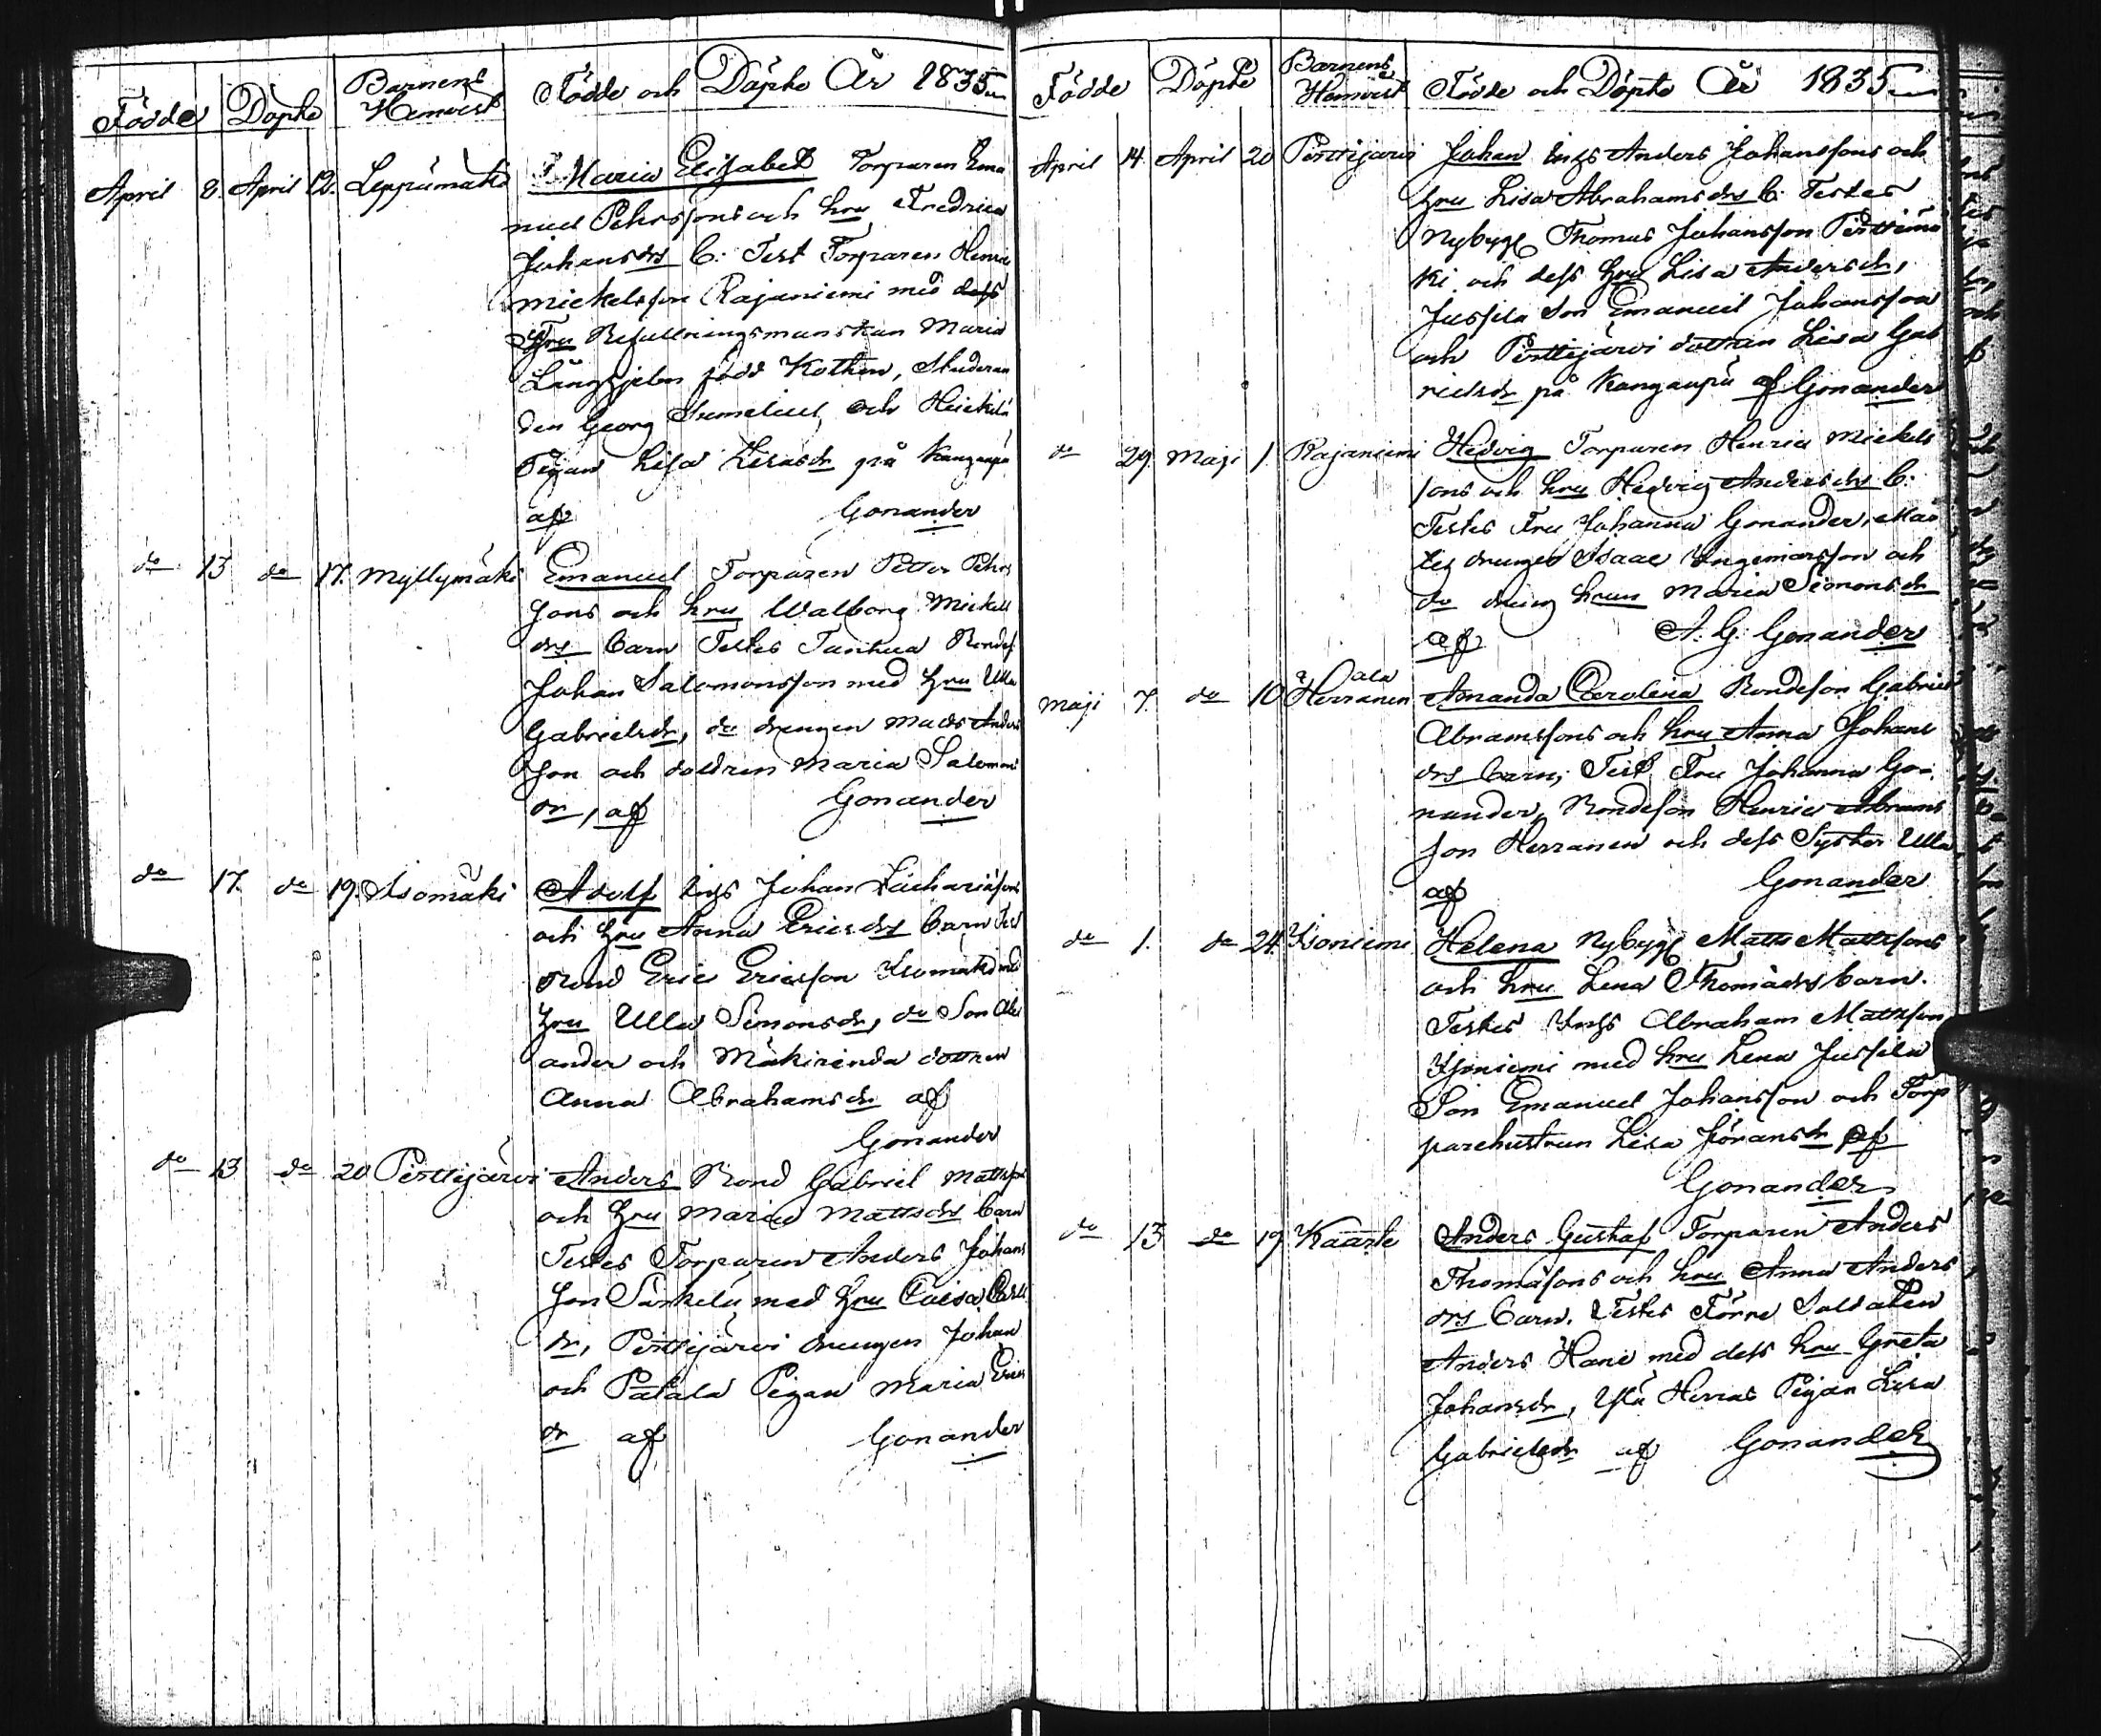 Födde Döpte Barnens Hemvist Födde och Döpte År 1835
April 8. April 12. Leppämäki Maria Elisabet Torparen Ema
nuel Pehrssons och hru Fredrica
Johansdrs b. Test Torparen Henric
Mickelsson Rajaniemi med dess
Hru Befallningsmanskan Maria
Långhjelm född Kothen, Studeran
den Georg Sumelius och Heickilä
Pigan Lisa Lisasdr på Kangaspä
af Gonander
do 13 do 17. Myllymäki Emanuel Torparen Petter Pehrs
sons och hru Walborg Mickels
drs barn Testes Tanhua Bondes
Johan Salomonsson med hru Ulla
Gabrielsdr, do drengen Mats Anders
son och dottren Maria Salomons
dr, af Gonander
do 17. do 19. Isomäki Adolf Inhs Johan Zachariäsons
och hru Anna Ericsdrs barn Test
Bond Eric Ericsson Isomäki med
hru Ulla Simonsdr, do Son Alex
ander och Mäkirinda dottren
Anna Abrahamsdr af
Gonander
do 13 do 20 Perttijärvi Anders Bond Gabriel Mattsons
och hru Maria Mattsdrs barn
Testes Torparen Anders Johans
son Särkelä med hru Caisa Carls
dr, Perttijärvi drengen Johan
och Patala Pigan Maria Erics
dr af Gonander
Födde Döpte Barnens Hemvist Födde och Döpte År 1835
April 14. April 20 Perttijärvi Johan Inhs Anders Johanssons och
hru Lisa Abrahamsdrs b. Testes
Nybygg Thomas Johansson Perttimä
ki och dess hru Lisa Andersdr,
Jussila Son Emanuel Johansson
och Perttijärvi dottren Lisa Gab
rielsdr på Kangaspä af Gonander
do 29. Maji 1. Rajaniemi Hedvig Torparen Henric Mickels
sons och hru Hedvig Andersdrs b.
Testes Fru Johanna Gonander,
drengen Isaac Ingemarsson och
do dreng hrun Maria Simonsdr
af A. G. Gonander
Maji 7. do 10 Ala Herranen Amanda Carolina Bondeson Gabriel
Abramssons och hru Anna Johans
drs barn; Test Fru Johanna Go
nander, Bondeson Henric Abrams
son Herranen och dess Syster Ulla
af Gonander
do 1. do 24. Isoniemi Helena Nybygg Matts Mattssons
och hru Lena Thomädrs barn.
Testes Inhs Abraham Mattsson
Isoniemi med hru Lena Jussila
Son Emanuel Johansson och Torp
parehustrun Lisa Jöransdr af
Gonander
do 13 do 19 Kaarle Anders Gustaf Torparen Anders
Thomäsons och hru Anna Anders
drs barn. Testes Förre Soldaten
Anders Hane med dess hru Greta
Johansdr, Herras Pigan Lisa
Gabrielsdr af Gonander